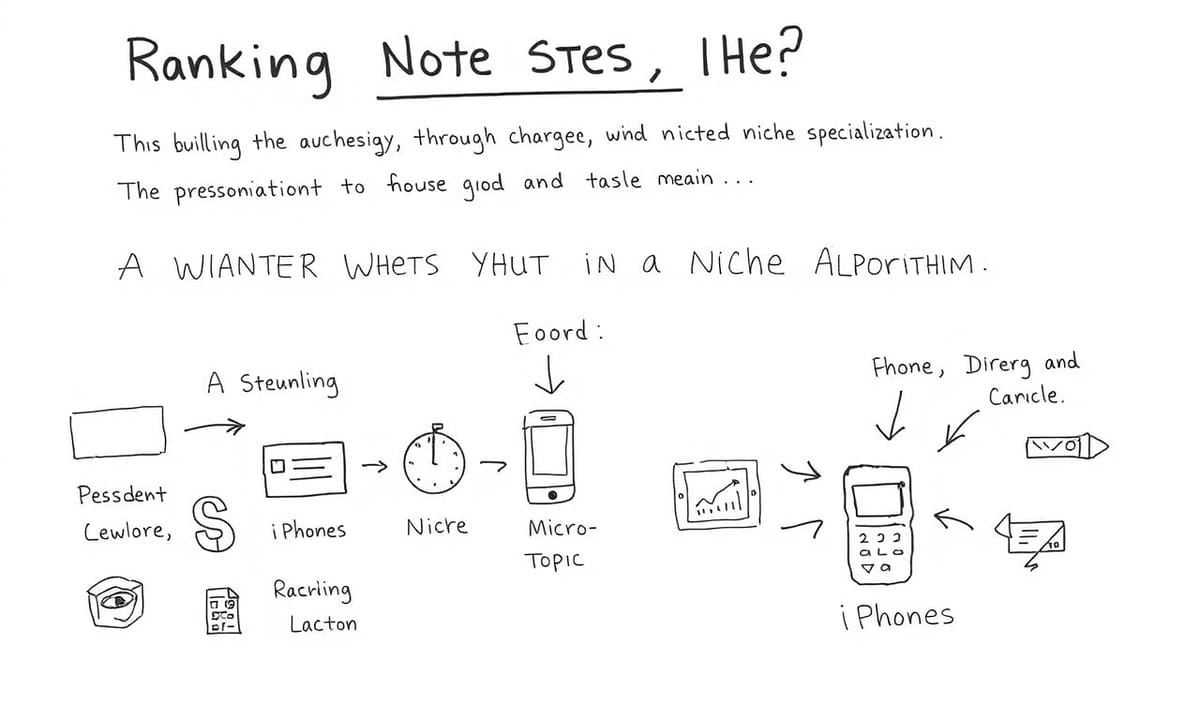 Ranking Note STes, IHe?
This builling the auchesigy, through chargee, wind nicted niche specialization.
The pressoniationt to house giod and tasle meain ...
A WIANTER WHETS YHUT iN a NiChe ALPORITHIM.
Eoord:
A Steunling
Pessdent
Cewlore,
$
iPhones
Nicre
Micro-
TOPIC
Racrling
Lacton
Fhone, Direrg and
Caricle.
iPhones